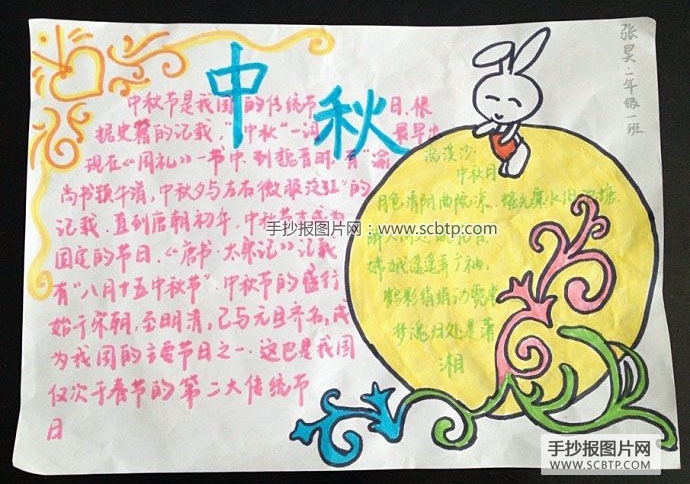 中秋
张昊 二年级一班
中秋节是我国的传统节日.根
据史籍的记载,"中秋"一词最早出
现在《周礼》一书中.到魏晋时,有"谕
尚书镇牛渚,中秋夕与左右微服泛江"的
记载.直到唐朝初年,中秋节才成为
固定的节日.《唐书·太宗记》记载
有"八月十五中秋节"中秋节的盛行
始于宋朝,至明清,已与元旦齐名,成
为我国的主要节日之一.这也是我国
仅次于春节的第二大传统节
日
浣溪沙
中秋日
月色清阴曲院凉
嫦娥遥遥弄广袖,
鹤影绡绡动霓裳
梦魂归处是潇
湘
手抄报图片网:www.scbtp.com
手抄报图片网
WWW.SCBTP.COM